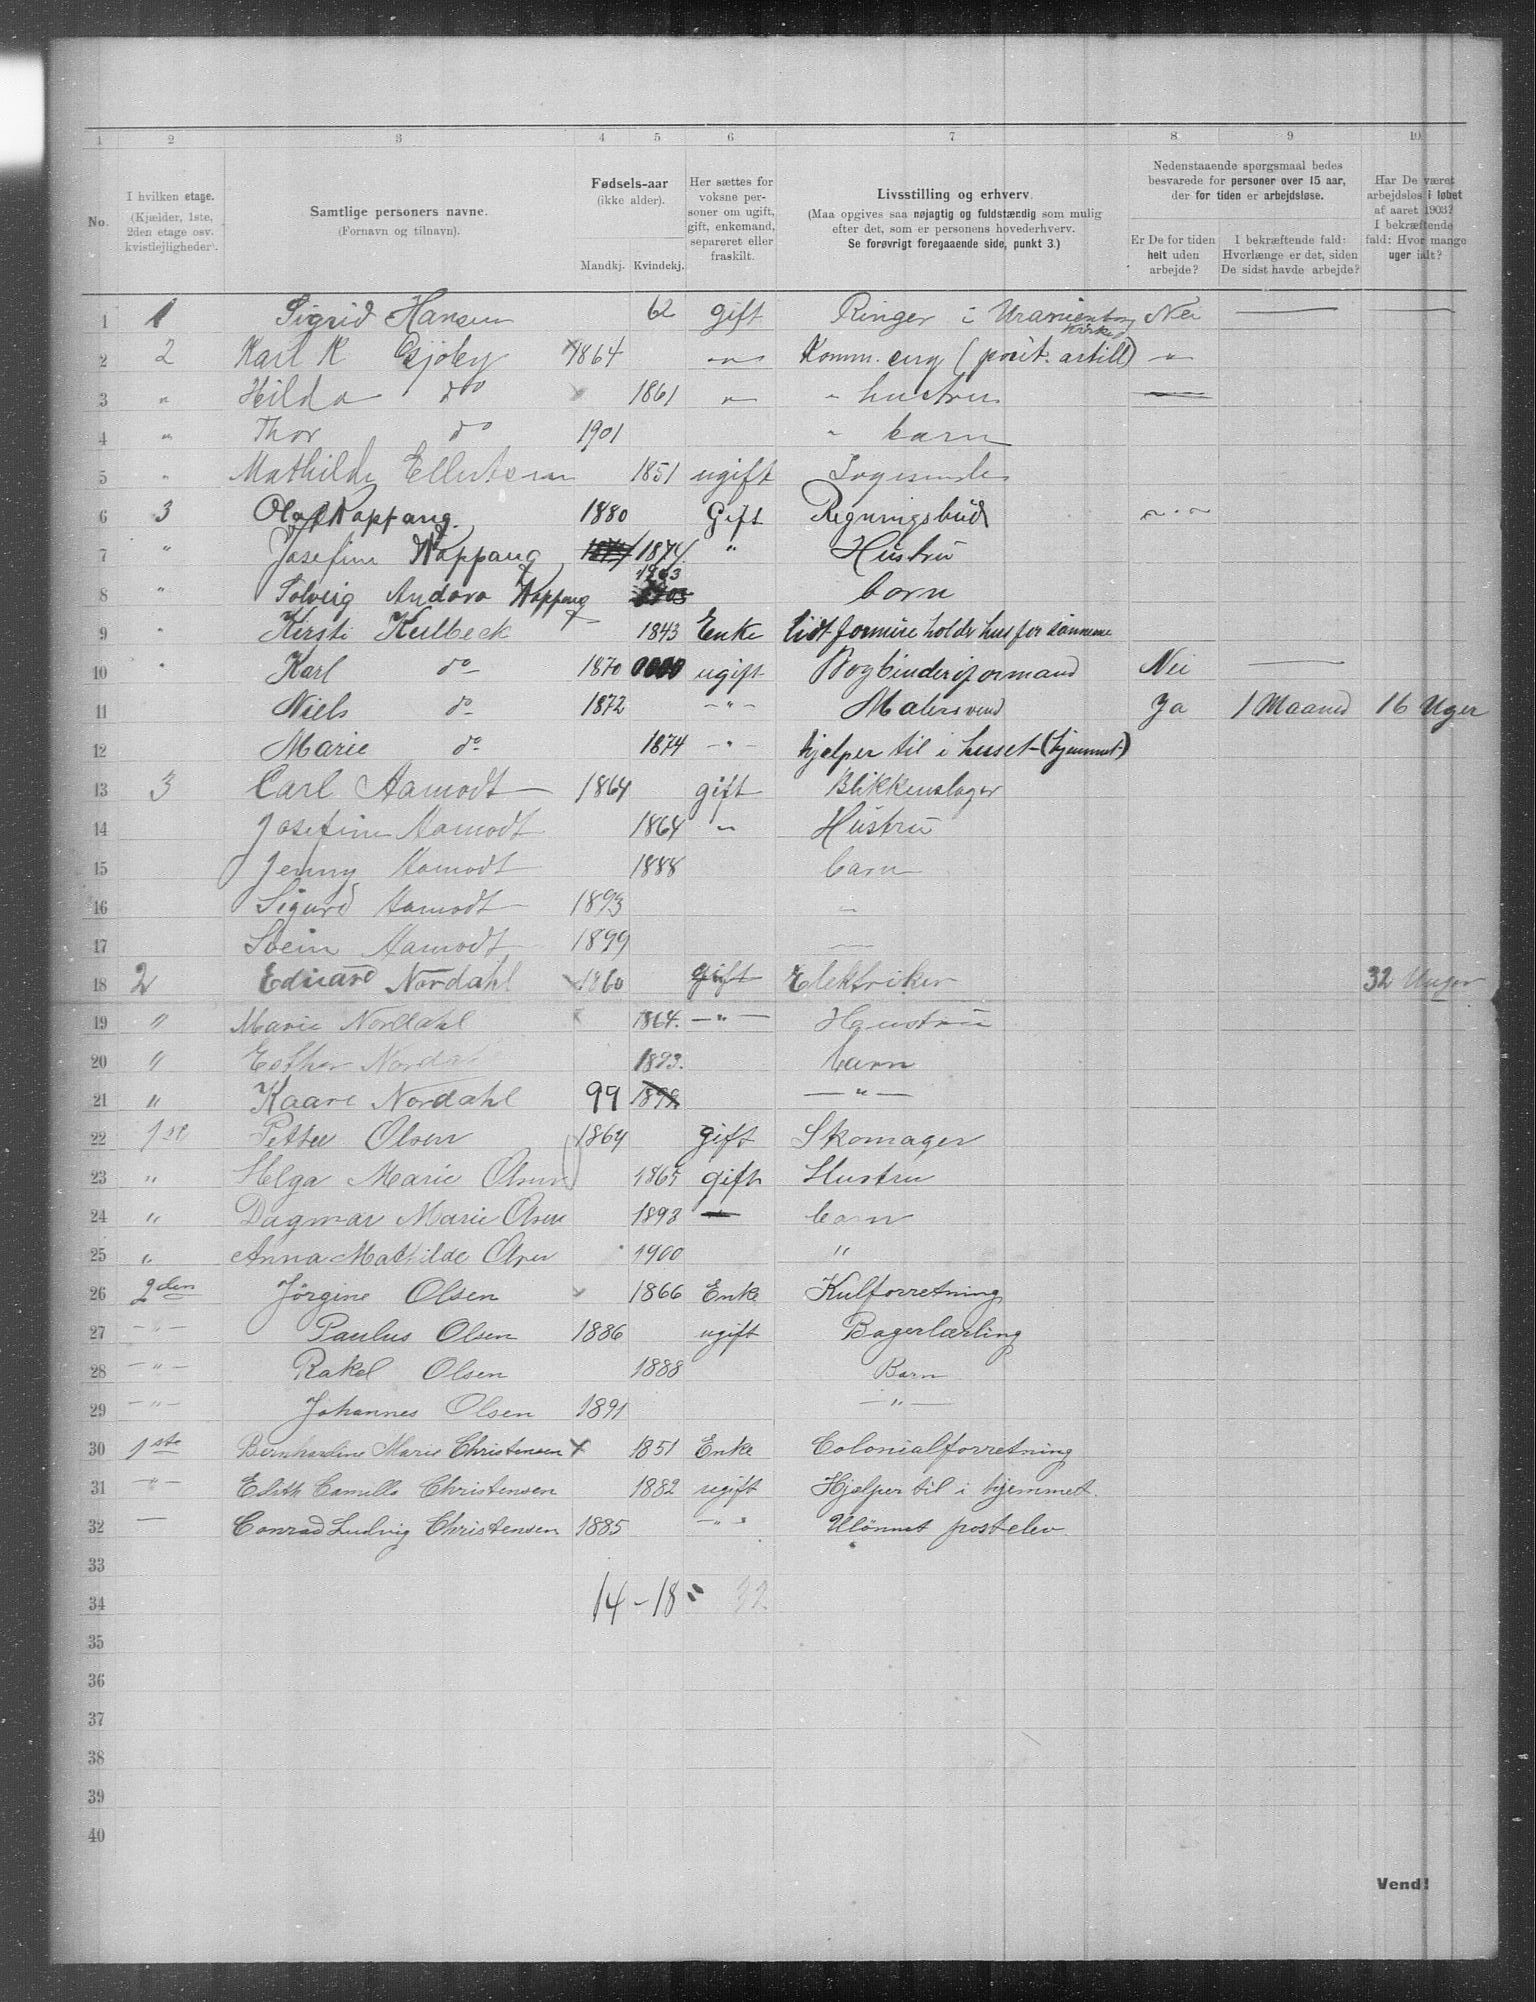 1 2 3 4 5 6 7 8 9 10
No.
I hvilken etage.
(Kjælder, 1ste,
2den etage osv.
kvistlejligheder).
Samtlige personers navne.
(Fornavn og tilnavn).
Fødsels-aar
(ikke alder).
Mandkj. Kvindekj.
Her sættes for
voksne per-
soner om ugift,
gift, enkemand,
separeret eller
fraskilt.
Livsstilling og erhverv.
(Maa opgives saa nøjagtig og fuldstændig som mulig
efter det, som er personens hovederhverv.
Se forøvrigt foregaaende side, punkt 3.)
Nedenstaaende spørgsmaal bedes
besvarede for personer over 15 aar,
der for tiden er arbejdsløse.
Er De for tiden
helt uden
arbejde?
I bekræftende fald:
Hvorlænge er det, siden
De sidst havde arbejde?
Har De været
arbejdsløs i løbet
af aaret 1903?
I bekræftende
fald: Hvor mange
uger ialt?
1 1 Sigrid Hansen 62 gift Ringer i Uranienborg Kirke Nei — —
2 2 Karl K Gjöby 1864 " Komm. erg (posit. artill) "
3 " Hilda do 1861 " " hustru —
4 " Thor do 1901 " barn
5 " Mathilde Ellertsen 1851 ugift Logerende
6 3 Olaf Kappang. 1880 Gift Regningsbud " "
7 " Josefine Kappang 1874 " Hustru
8 " Solveig Andora Kappang 1903 barn
9 " Kirsti Kulbeck 1843 Enke lidt formue holdr hus for sønnerne
10 " Karl do 1870 ugift Bogbinderiformand Nei —
11 Niels do 1872 " Malersvend Ja 1 Maaned 16 Uger
12 Marie do 1874 " hjelper til i huset (hjemmet)
13 3 Carl Aamodt 1864 gift Blikkenslager
14 Josefine Aamodt 1864 " Hustru
15 Jenny Aamodt 1888 barn
16 Sigurd Aamodt 1893 —
17 Svein Aamodt 1899 —
18 2 Edvard Nordahl 1860 gift Elektriker 32 Unger
19 " Marie Nordahl 1864. — " — Haustru
20 " Esther Nordal 1893. barn
21 " Kaare Nordahl 99 1899 — " —
22 1st Petter Olsen 1864 gift Skomager
23 " Helga Marie Olsen 1865 gift Hustru
24 " Dagmar Marie Olsen 1893 — barn
25 " Anna Mathilde Olsen 1900 "
26 2den Jørgine Olsen 1866 Enke Kulforretning
27 — " — Paulus Olsen 1886 ugift Bagerlærling
28 — " — Rakel Olsen 1888 Barn
29 — " — Johannes Olsen 1891 — " —
30 1ste Bernhardine Marie Christensen x 1851 Enke Colonialforretning
31 — " — Edith Camilla Christensen 1882 ugift Hjælper til i hjemmet.
32 — Conrad Ludvig Christensen 1885 — " — Ulönnet postelev.
33
34 14 – 18 = 32
35
36
37
38
39
40
Vend!